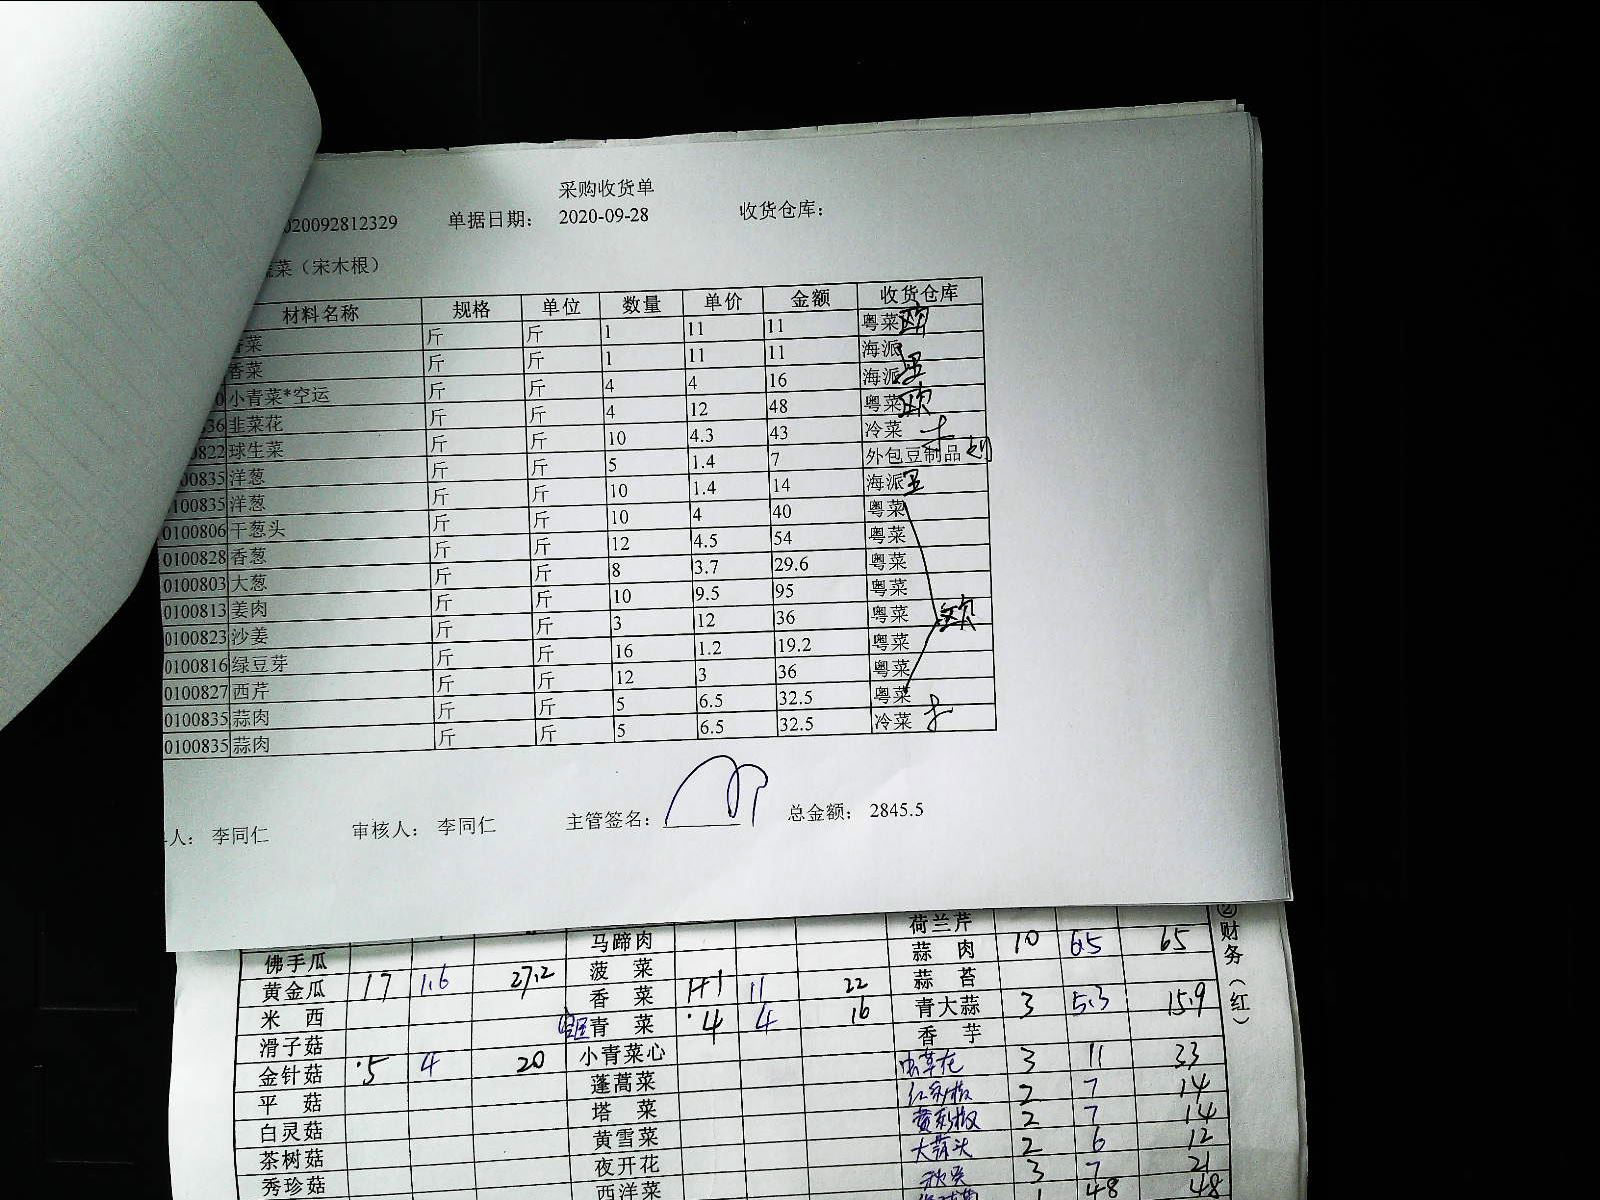 采购收货单
020092812329 单据日期： 2020-09-28 收货仓库：
蔬菜（宋木根）
材料名称 规格 单位 数量 单价 金额 收货仓库
香菜 斤 斤 1 11 11 粤菜
香菜 斤 斤 1 11 11 海派
0 小青菜*空运 斤 斤 4 4 16 海派
836 韭菜花 斤 斤 4 12 48 粤菜
0822 球生菜 斤 斤 10 4.3 43 冷菜
00835 洋葱 斤 斤 5 1.4 7 外包豆制品
100835 洋葱 斤 斤 10 1.4 14 海派
0100806 干葱头 斤 斤 10 4 40 粤菜
0100828 香葱 斤 斤 12 4.5 54 粤菜
0100803 大葱 斤 斤 8 3.7 29.6 粤菜
0100813 姜肉 斤 斤 10 9.5 95 粤菜
0100823 沙姜 斤 斤 3 12 36 粤菜
0100816 绿豆芽 斤 斤 16 1.2 19.2 粤菜
0100827 西芹 斤 斤 12 3 36 粤菜
0100835 蒜肉 斤 斤 5 6.5 32.5 粤菜
0100835 蒜肉 斤 斤 5 6.5 32.5 冷菜
人： 李同仁 审核人： 李同仁 主管签名： 总金额： 2845.5
马蹄肉 荷兰芹
佛手瓜 菠 菜 蒜 肉 10 6.5 65
黄金瓜 17 1.6 27.2 香 菜 1+1 11 22 蒜 苔
米 西 青 菜 4 4 16 青大蒜 3 5.3 15.9
滑子菇 小青菜心 香 芋
金针菇 5 4 20 蓬蒿菜 虫草花 3 11 33
平 菇 塔 菜 红剁椒 2 7 14
白灵菇 黄雪菜 黄剁椒 2 7 14
茶树菇 夜开花 大蒜头 2 6 12
秀珍菇 西洋菜 秋葵 3 7 21
1 48 48
②财务（红）